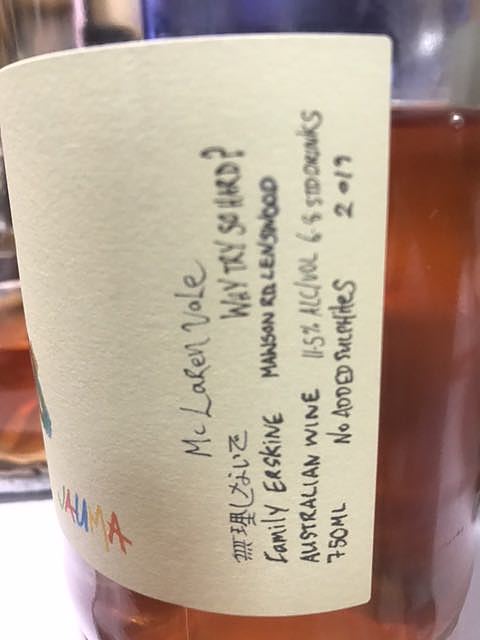 JAUMA
McLaren Vale
無理しないで WHY TRY SO HARD?
Family ERSKINE MANSON RD LENSWOOD
AUSTRALIAN WINE 11.5% ALC/VOL 6.8 STD DRINKS
750ML NO ADDED SULPHITES 2019